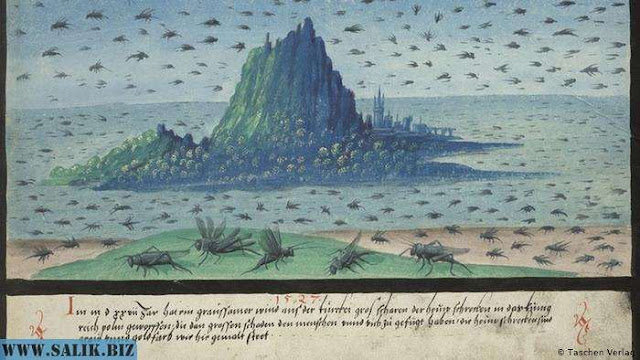 1527
Im m d xxvii Jar hat ein graussamer wind aus der türckei gros scharen der heüschrecken in das künig
reich poln geworffen, die den grossen schaden den menschen vnnd vich zu gefügt haben, die heuschrecken sind
vnnd goldfarb wie hie gemalt stet
WWW.SALIK.BIZ
© Taschen Verlag